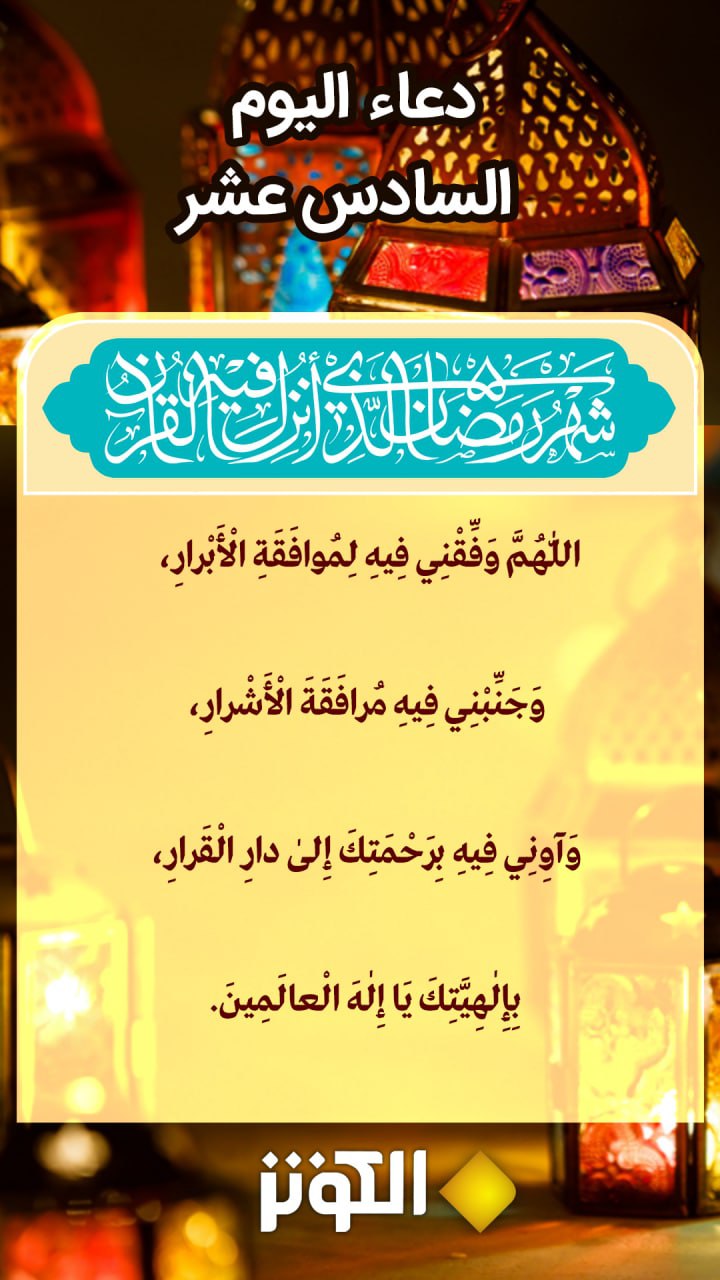 دعاء اليوم
السادس عشر
شَهْرُ رَمَضَانَ الَّذِي أُنزِلَ فِيهِ الْقُرْآنُ
اللّٰهُمَّ وَفِّقْنِي فِيهِ لِمُوافَقَةِ الْأَبْرارِ،
وَجَنِّبْنِي فِيهِ مُرافَقَةَ الْأَشْرارِ،
وَآوِنِي فِيهِ بِرَحْمَتِكَ إِلىٰ دارِ الْقَرارِ،
بِإِلٰهِيَّتِكَ يَا إِلٰهَ الْعالَمِينَ.
الكوثر